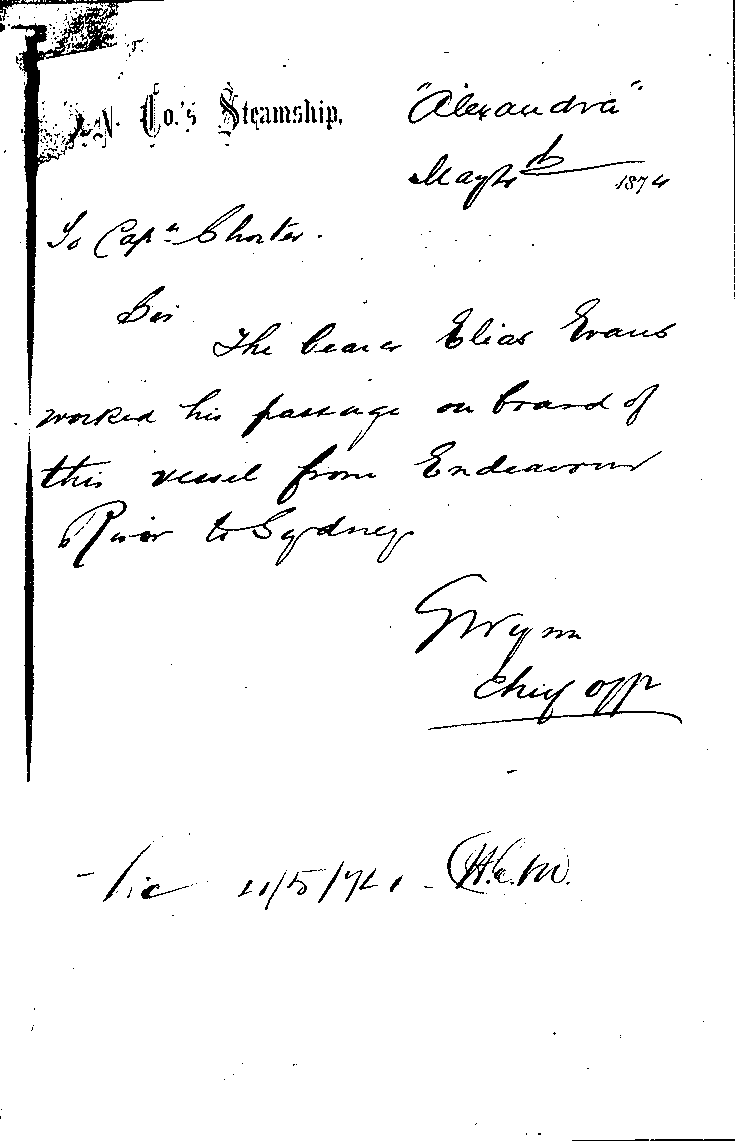 N. Co.'s Steamship, "Alexandra"
May 4th 1874
To Capn Shorter.
Sir
The bearer Elias Evans
worked his passage on board of
this vessel from Endeavour
River to Sydney
G Wynn
Chief Offr
11/5/74. H.C.M.